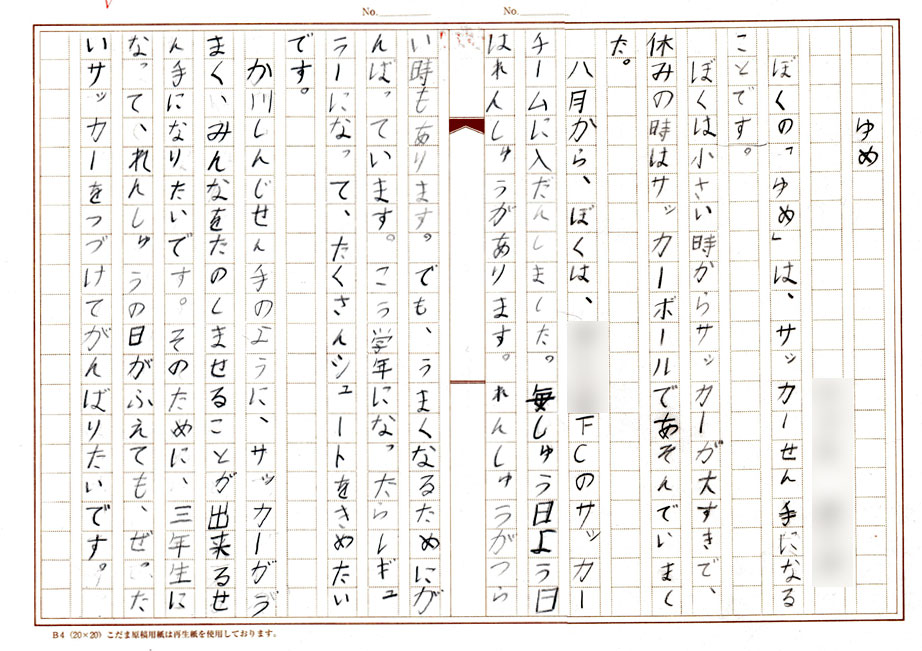 No.
No.
ゆめ
ぼくの「ゆめ」は、サッカーせん手になる
ことです。
ぼくは小さい時からサッカーが大すきで、
休みの時はサッカーボールであそんでいまし
た。
八月から、ぼくは、
FCのサッカー
チームに入だんしました。毎しゅう日よう日
はれんしゅうがあります。れんしゅうがつら
い時もあります。でも、うまくなるためにが
んばっています。こう学年になったらレギュ
ラーになって、たくさんシュートをきめたい
です。
か川しんじせん手のように、サッカーがう
まく、みんなをたのしませることが出来るせ
ん手になりたいです。そのために、三年生に
なって、れんしゅうの日がふえても、ぜった
いサッカーをつづけてがんばりたいです。
B4（20×20）こだま原稿用紙は再生紙を使用しております。